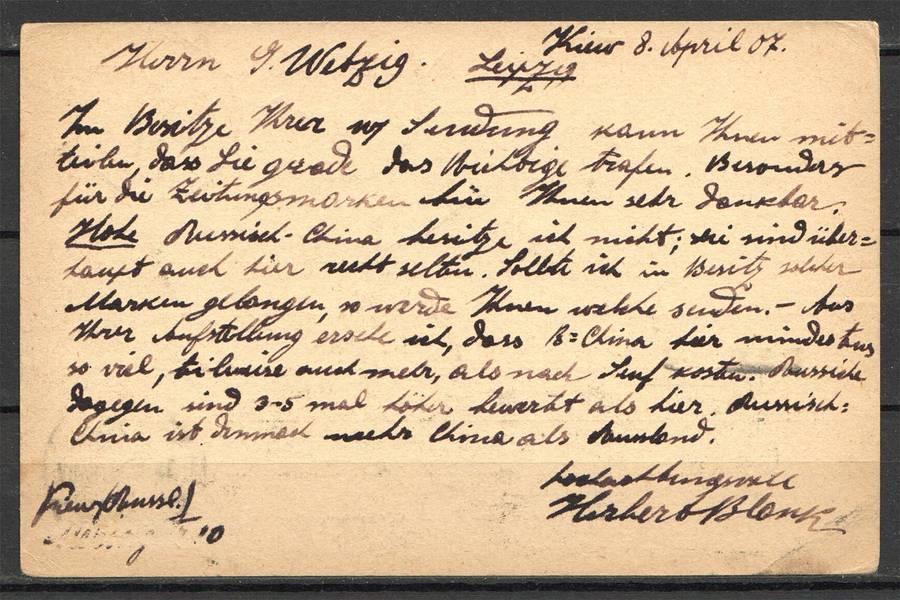 Kiew 8. April 07.
Herrn G. Wetzig. Leipzig
Im Besitze Ihrer w/ Sendung kann Ihnen mit=
teilen, dass Sie gerade das Richtige trafen. Besonders
für die Zeitungsmarken bin Ihnen sehr dankbar.
Hohe Russisch-China besitze ich nicht; sie sind über=
haupt auch hier recht selten. Sollte ich in Besitz solcher
Marken gelangen, so werde Ihnen welche senden.- Aus
Ihrer Aufstellung ersehe ich, dass R=China hier mindestens
so viel, teilweise auch mehr, als nach Senf kosten. Russische
dagegen sind 3-5 mal höher bewertet als hier. Russisch=
China ist demnach mehr China als Russland.
Hochachtungsvoll
Herbert Blank
Kiew (Russl.)
10